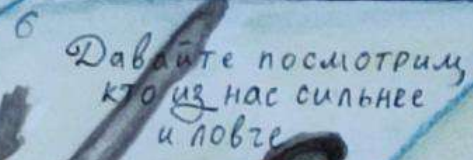 6
Давайте посмотрим,
кто из нас сильнее
и ловче